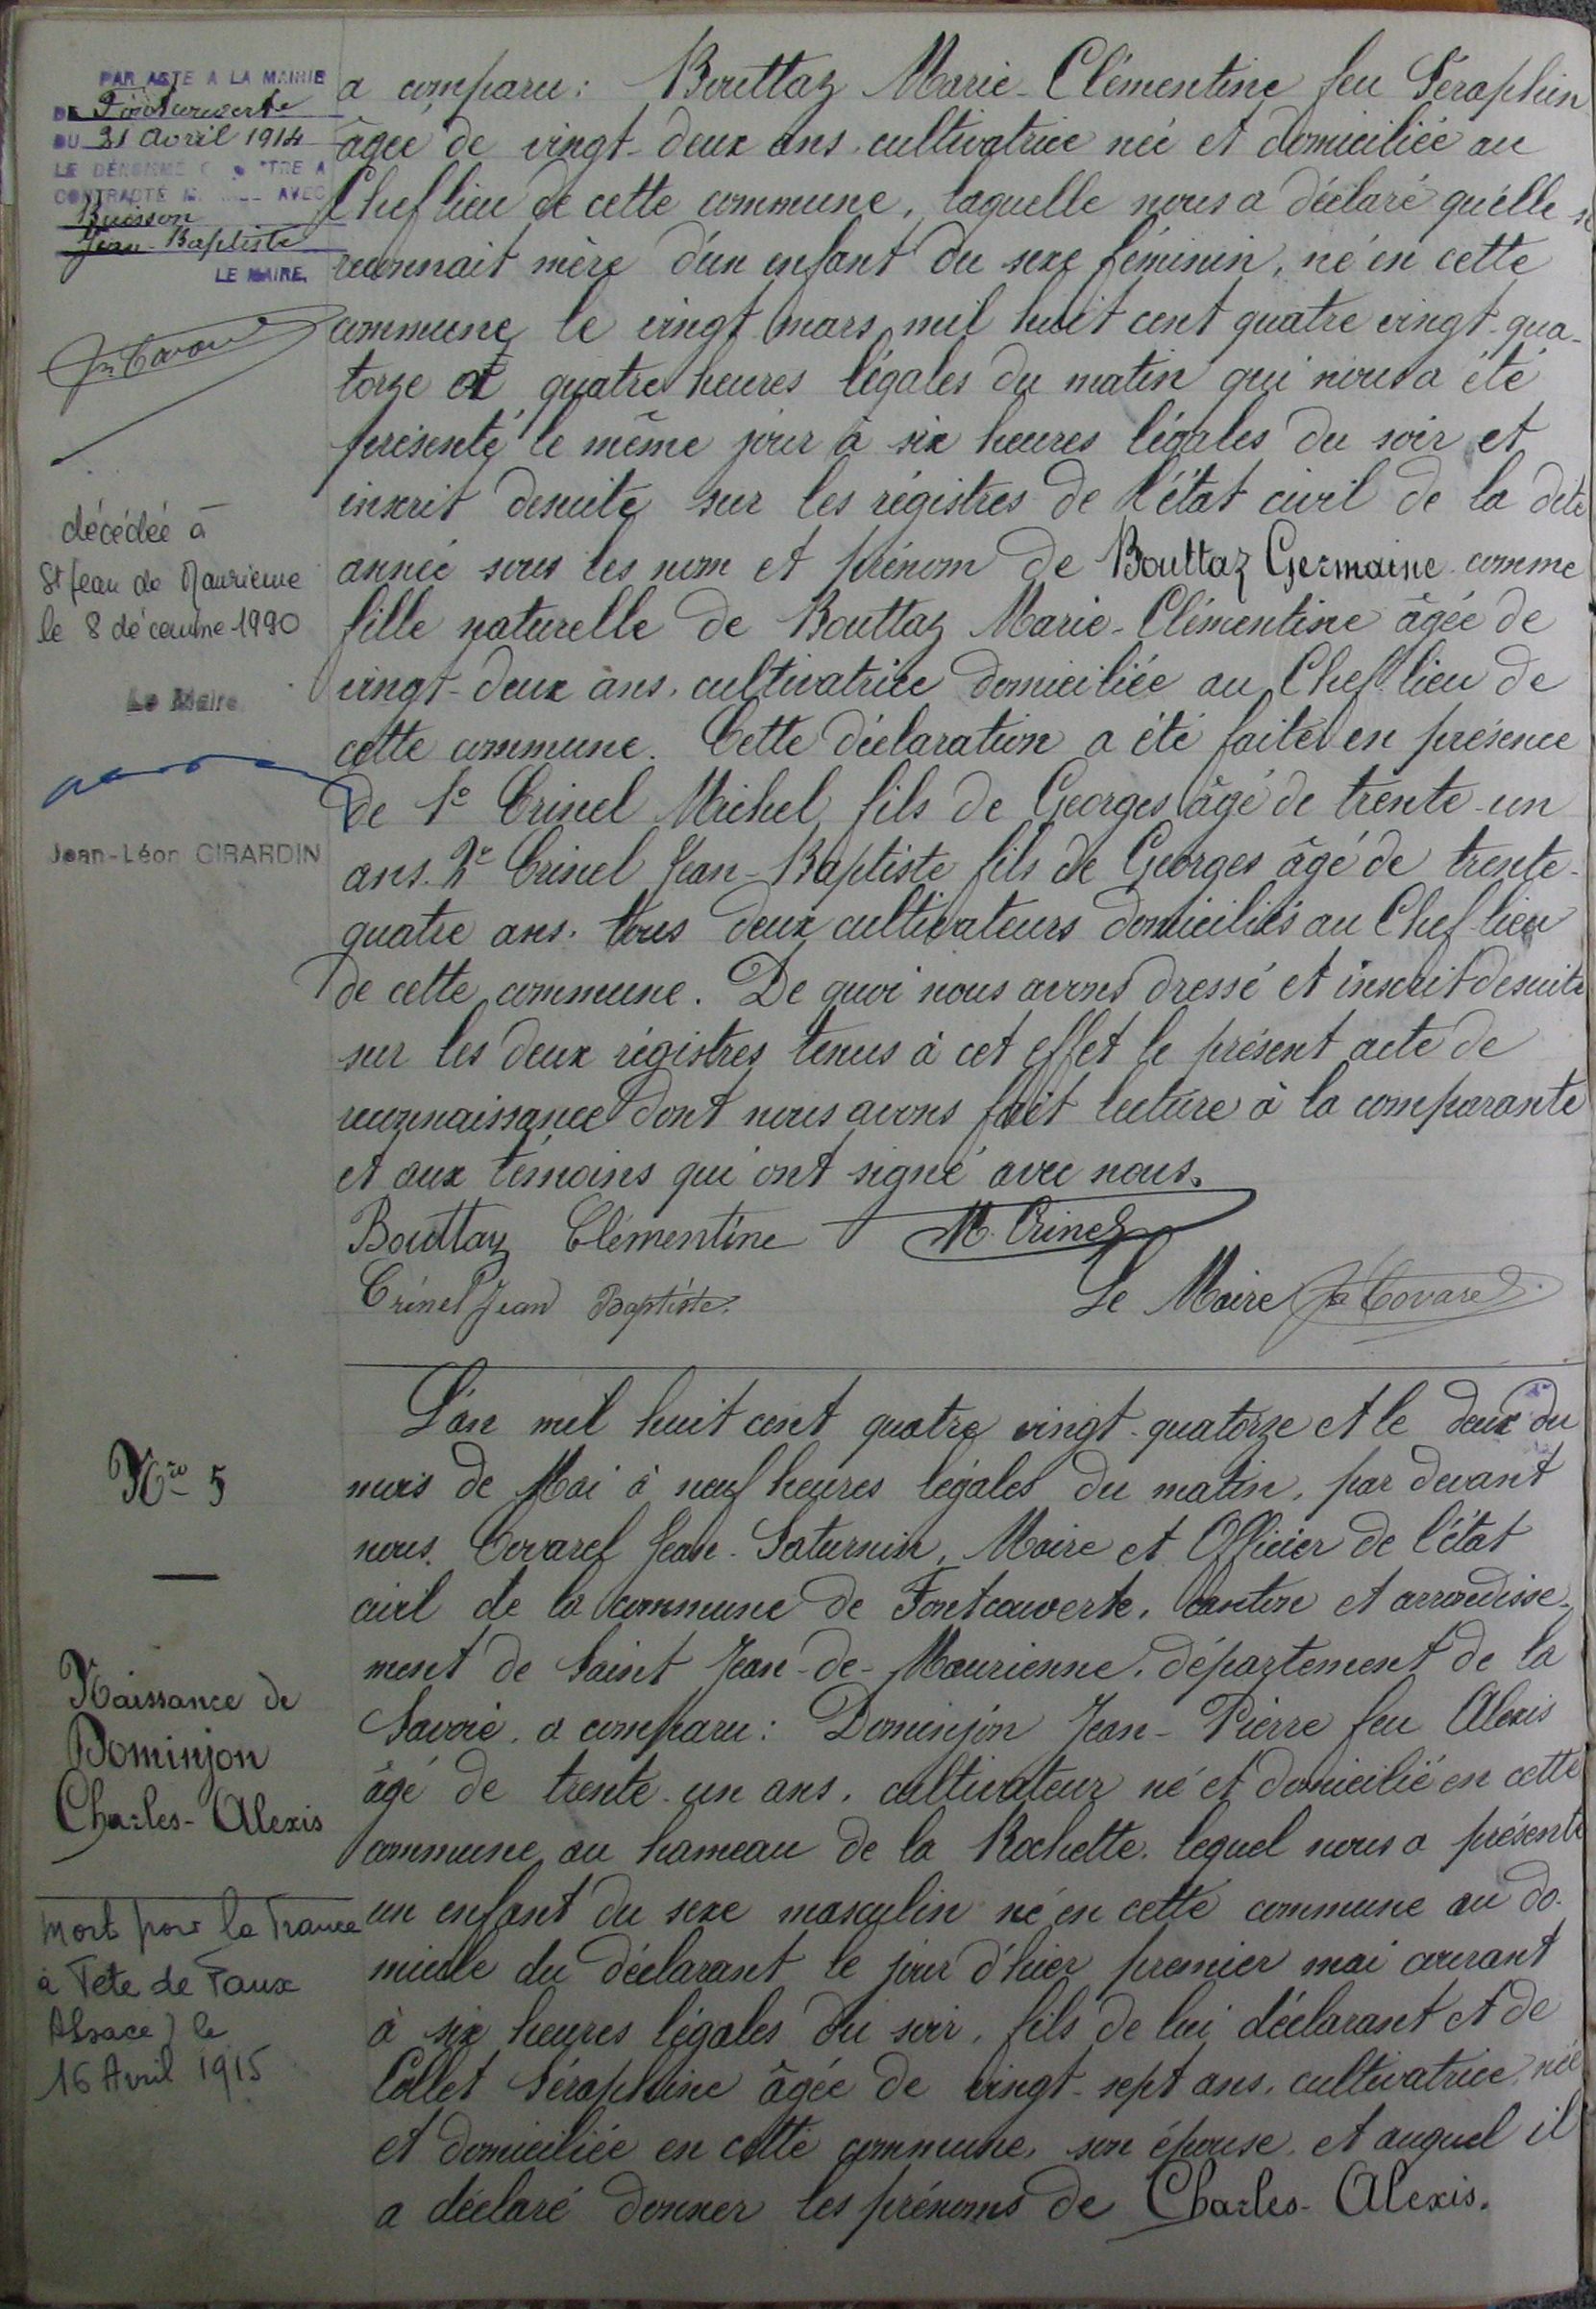 PAR ACTE A LA MAIRIE
DE Fontcouverte
DU 21 Avril 1914
LE DÉNOMMÉ CONTRE A
CONTRACTÉ AVEC
Buisson
Jean-Baptiste
LE MAIRE
décédée à
St Jean de Maurienne
le 8 décembre 1990
Le Maire
Jean-Léon GIRARDIN
a comparu : Bouttaz Marie-Clémentine feu Séraphin
âgée de vingt-deux ans, cultivatrice née et domiciliée au
Chef lieu de cette commune, laquelle nous a déclaré qu'elle se
reconnait mère d'un enfant du sexe féminin, né en cette
commune le vingt mars mil huit cent quatre vingt-qua-
torze à quatre heures légales du matin qui nous a été
présenté le même jour à six heures légales du soir et
inscrit desuite sur les régistres de l'état civil de la dite
année sous les nom et prénom de Bouttaz Germaine comme
fille naturelle de Bouttaz Marie-Clémentine âgée de
vingt-deux ans, cultivatrice domiciliée au Chef-lieu de
cette commune. Cette déclaration a été faite en présence
de 1° Crinel Michel fils de Georges âgé de trente-un
ans. 2° Crinel Jean-Baptiste fils de Georges âgé de trente-
quatre ans. tous deux cultivateurs domiciliés au Chef-lieu
de cette commune. De quoi nous avons dressé et inscrit desuite
sur les deux régistres tenus à cet effet le présent acte de
reconnaissance dont nous avons fait lecture à la comparante
et aux témoins qui ont signé avec nous.
Bouttaz Clémentine M. Crinel
Crinel Jean Baptiste. Le Maire Jn Covarel
Nro 5
Naissance de
Dominjon
Charles-Alexis
Mort pour la France
à Tete de Faux
Alsace) le
16 Avril 1915
L'an mil huit cent quatre vingt-quatorze et le deux du
mois de Mai à neuf heures légales du matin, par devant
nous. Covarel Jean-Saturnin, Maire et Officier de l'état
civil de la commune de Fontcouverte, canton et arrondisse-
ment de Saint Jean-de-Maurienne, département de la
Savoie, a comparu : Dominjon Jean-Pierre feu Alexis
âgé de trente-un ans, cultivateur né et domicilié en cette
commune au hameau de la Rochette. lequel nous a présenté
un enfant du sexe masculin né en cette commune au do-
micile du déclarant le jour d'hier premier mai courant
à six heures légales du soir, fils de lui déclarant et de
Collet Séraphine âgée de vingt-sept ans, cultivatrice, née
et domiciliée en cette commune, son épouse, et auquel il
a déclaré donner les prénoms de Charles-Alexis.